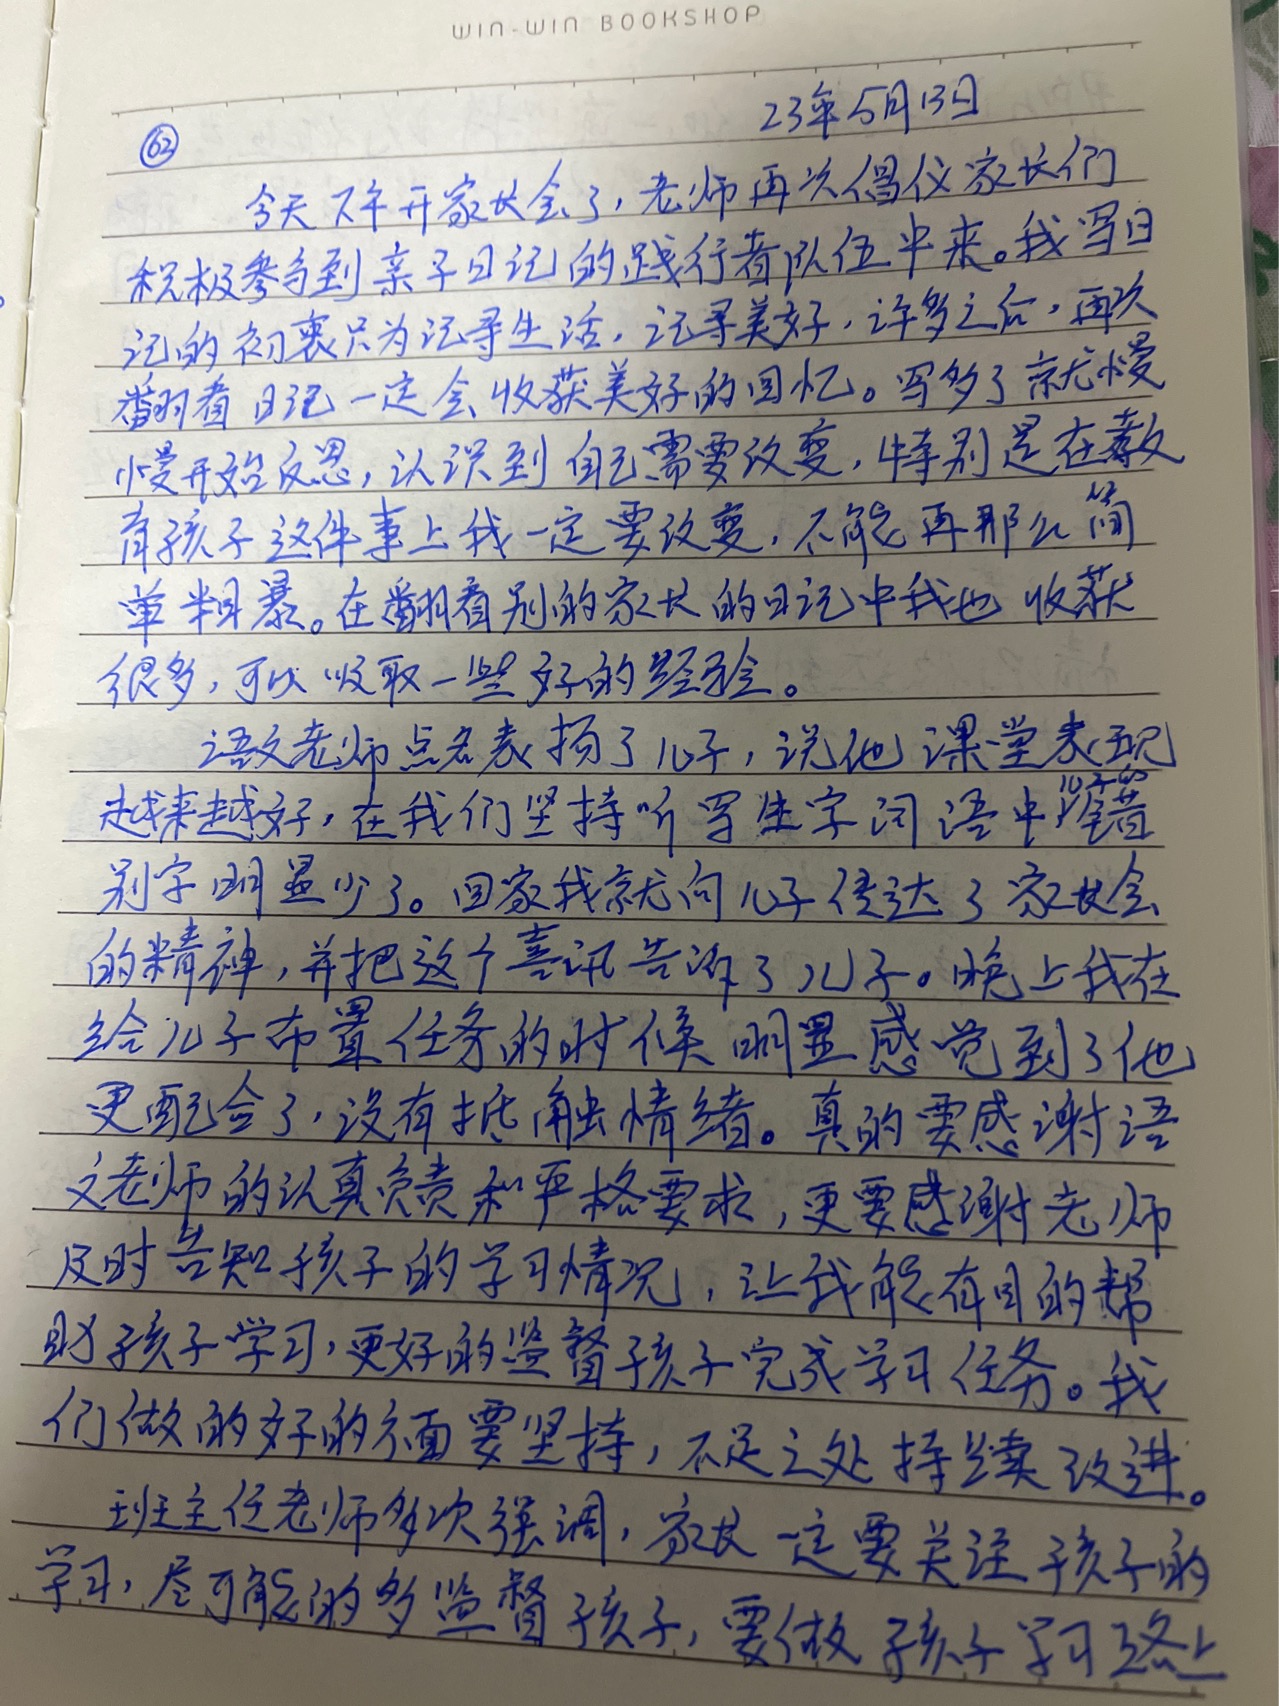 WIN-WIN BOOKSHOP
23年5月13日
62
今天下午开家长会了，老师再次倡仪家长们
积极参与到亲子日记的践行者队伍中来。我写日
记的初衷只为记录生活，记录美好，许多之后，再次
翻看日记一定会收获美好的回忆。写多了就慢
慢开始反思，认识到自己需要改变，特别是在教
育孩子这件事上我一定要改变，不能再那么简
单粗暴。在翻看别的家长的日记中我也收获
很多，可以吸取一些好的经验。
语文老师点名表扬了儿子，说他课堂表现
越来越好，在我们坚持听写生字词语中，儿子的错
别字明显少了。回家我就向儿子传达了家长会
的精神，并把这个喜讯告诉了儿子。晚上我在
给儿子布置任务的时候明显感觉到了他
更配合了，没有抵触情绪。真的要感谢语
文老师的认真负责和严格要求，更要感谢老师
及时告知孩子的学习情况，让我能有目的帮
助孩子学习，更好的监督孩子完成学习任务。我
们做的好的方面要坚持，不足之处持续改进。
班主任老师多次强调，家长一定要关注孩子的
学习，尽可能的多监督孩子，要做孩子学习路上